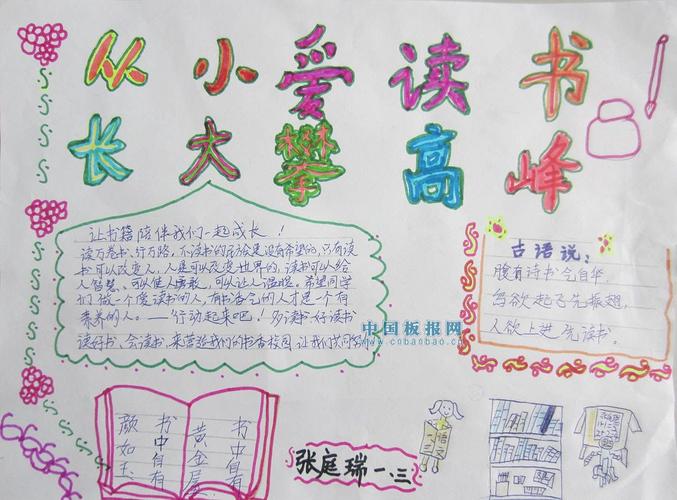 从小爱读书
长大攀高峰
让书籍陪伴我们一起成长！
读万卷书、行万路，不读书的
是没有希望的，只有读
书可以改变人，人是可以改变世界的，读书可以给
人智慧、可以使人勇敢，可以让人温暖。希望同学
们做一个爱读书的人，有书香气的人才是一个有
素养的人。——行动起来吧！多读书、好读书
读好书、会读书，来营造我们的书香校园，让我们共同
古语说：
腹有诗书气自华，
鸟欲起飞先振翅，
人欲上进先读书。
中国板报网
www.cnbanbao.cn
书中自有
黄金屋
书中自有
颜如玉
张庭瑞 一、三
语文
一、三